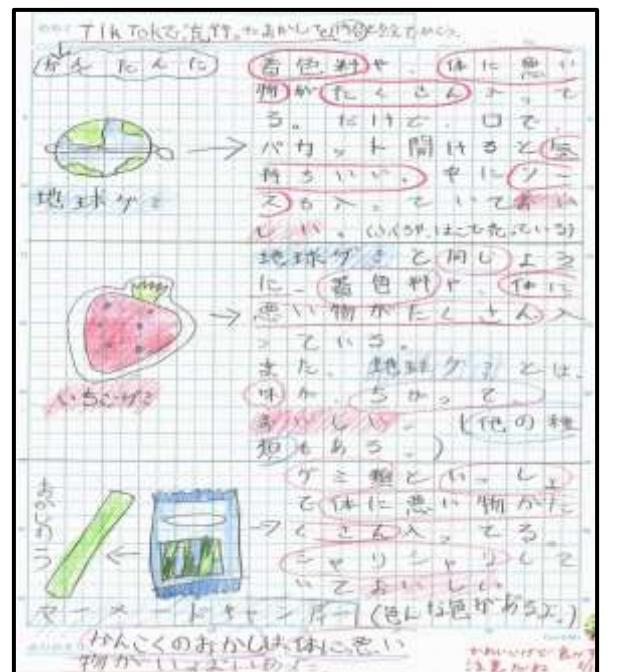 TikTokで流行ったおかしを内容と絵でかく。
かんたんに
着色料や、体に悪い
物がたくさん入って
る。だけど、口で
パカット開けると気
持ちいい。中にソー
スも入っていておい
しい。
地球グミ
地球グミと同じよう
に、着色料や、体に
悪い物がたくさん入
っている。
また、地球グミとは、
味が、ちがって
おいしい。(他の種
類もある。)
いちごグミ
グミ類といっしょ
で体に悪い物がた
くさん入ってる。
シャリシャリして
いておいしい
マーメードキャンディー (色んな色があるよ。)
かんこくのおかしは、体に、悪い
物が